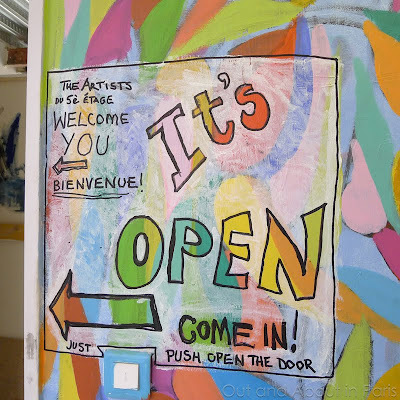 THE ARTISTS
DU 5È ÉTAGE
WELCOME
YOU
BIENVENUE!
It's
OPEN
COME IN!
JUST PUSH OPEN THE DOOR
Out and About in Paris